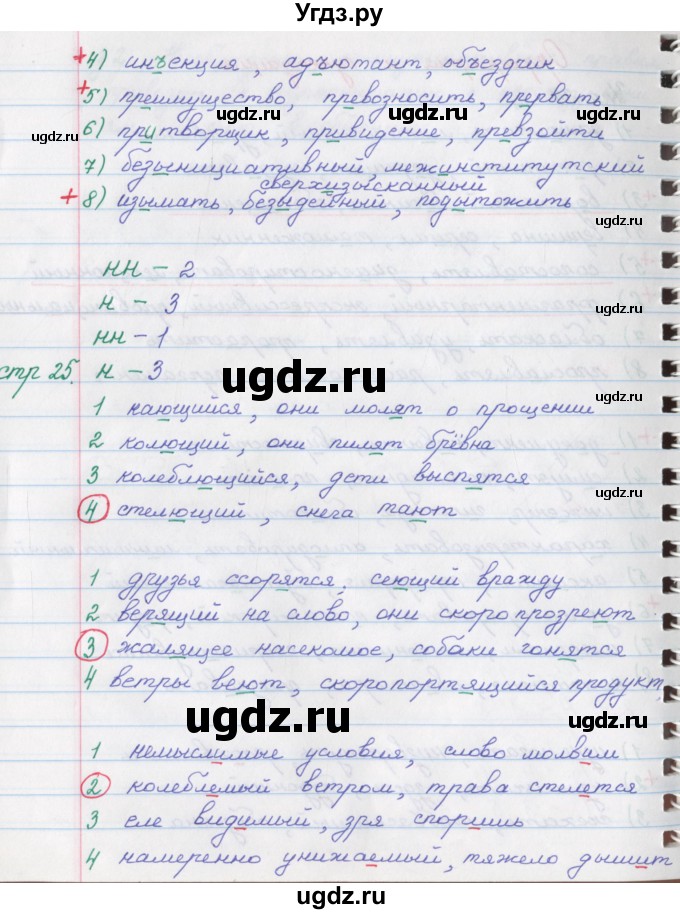 Угдз.ру
4) инъекция, адъютант, объездчик
5) преимущество, превозносить, прервать
6) притворщик, привидение, превзойти
7) безынициативный, межинститутский
сверхизысканный
8) изымать, безыдейный, подытожить
нн - 2
н - 3
нн - 1
стр 25. н - 3
1 кающийся, они молят о прощении
2 колющий, они пилят брёвна
3 колеблющийся, дети выспятся
4 стелющий, снега тают
1 друзья ссорятся, сеющий вражду
2 верящий на слово, они скоро прозреют
3 жалящее насекомое, собаки гонятся
4 ветры веют, скоропортящийся продукт
1 немыслимые условия, слово молвим
2 колеблемый ветром, трава стелется
3 еле видимый, зря споришь
4 намеренно унижаемый, тяжело дышит
ugdz.ru
ugdz.ru
ugdz.ru
ugdz.ru
ugdz.ru
ugdz.ru
ugdz.ru
ugdz.ru
ugdz.ru
ugdz.ru
ugdz.ru
ugdz.ru
ugdz.ru
ugdz.ru